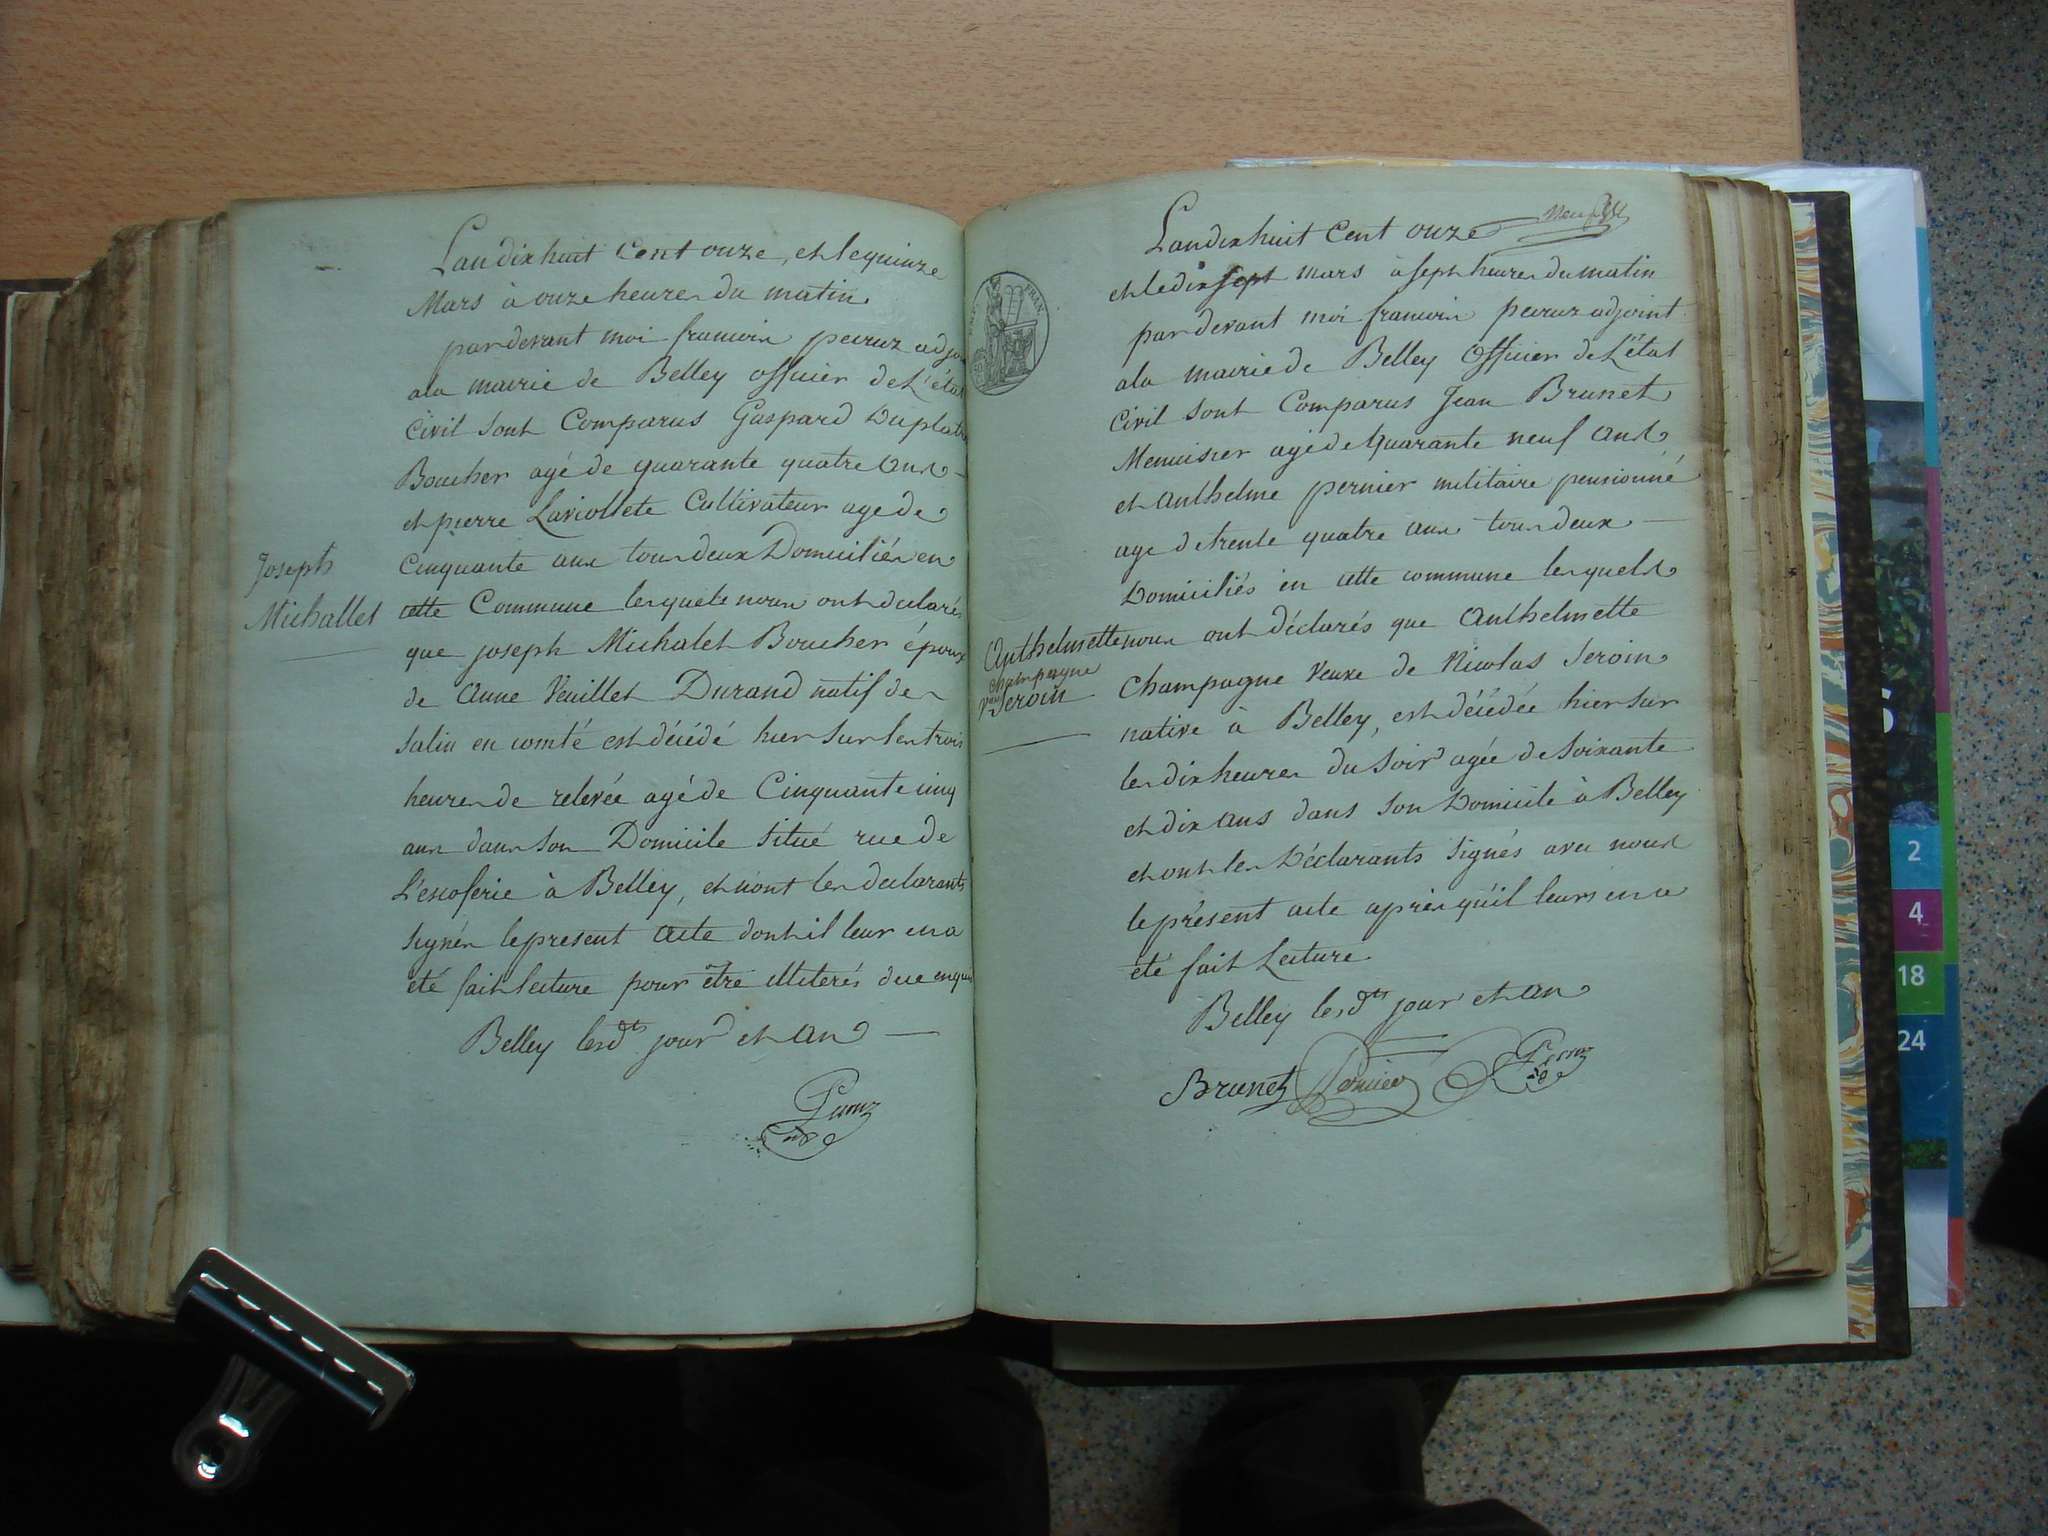 Joseph
Michallet
L'an dix huit cent onze, et le quinze
Mars à onze heures du matin
pardevant moi francois peiruz adjo
ala mairie de Belley officier de L'état
Civil sont Comparus Gaspard Duplatr
Boucher agé de quarante quatre ans
et pierre Laviollete Cultivateur age de
Cinquante ans tous deux Domiciliés en
cette Commune lesquels nous ont declarés
que joseph Michalet Boucher époux
de Anne Veuillet Durand natif de
Salin en comté est décédé hier sur les trois
heures de relevée agé de Cinquante cinq
ans dans son Domicile Situé rue de
L'escoferie à Belley, et n'ont les declarants
signés le present acte dont il leur en a
été fait lecture pour être illiterés de ce enquis
Belley lesdts jour et an
Peiruz
adj
L'an dix huit Cent onze
et le dix sept mars à sept heures du matin
pardevant moi francois peiruz adjoint
ala mairie de Belley Officier de L'état
Civil sont Comparus Jean Brunet
Menuisier agé de quarante neuf ans
et anthelme pernier militaire pensionné
age de trente quatre ans tous deux
Domiciliés en cette commune lesquels
nous ont déclarés que Anthelmette
Champagne Veuve de Nicolas Seroin
native à Belley, est décédée hier sur
les dix heures du Soir agée de Soixante
et dix ans dans son Domicile à Belley
et ont les Déclarants signés avec nous
le présent acte après qu'il leurs en a
été fait Lecture
Belley lesdts jour et an
Brunet Pernier Peiruz
adj
Anthelmette
champagne
Vve Seroin
FRAN
S
2
4
18
24